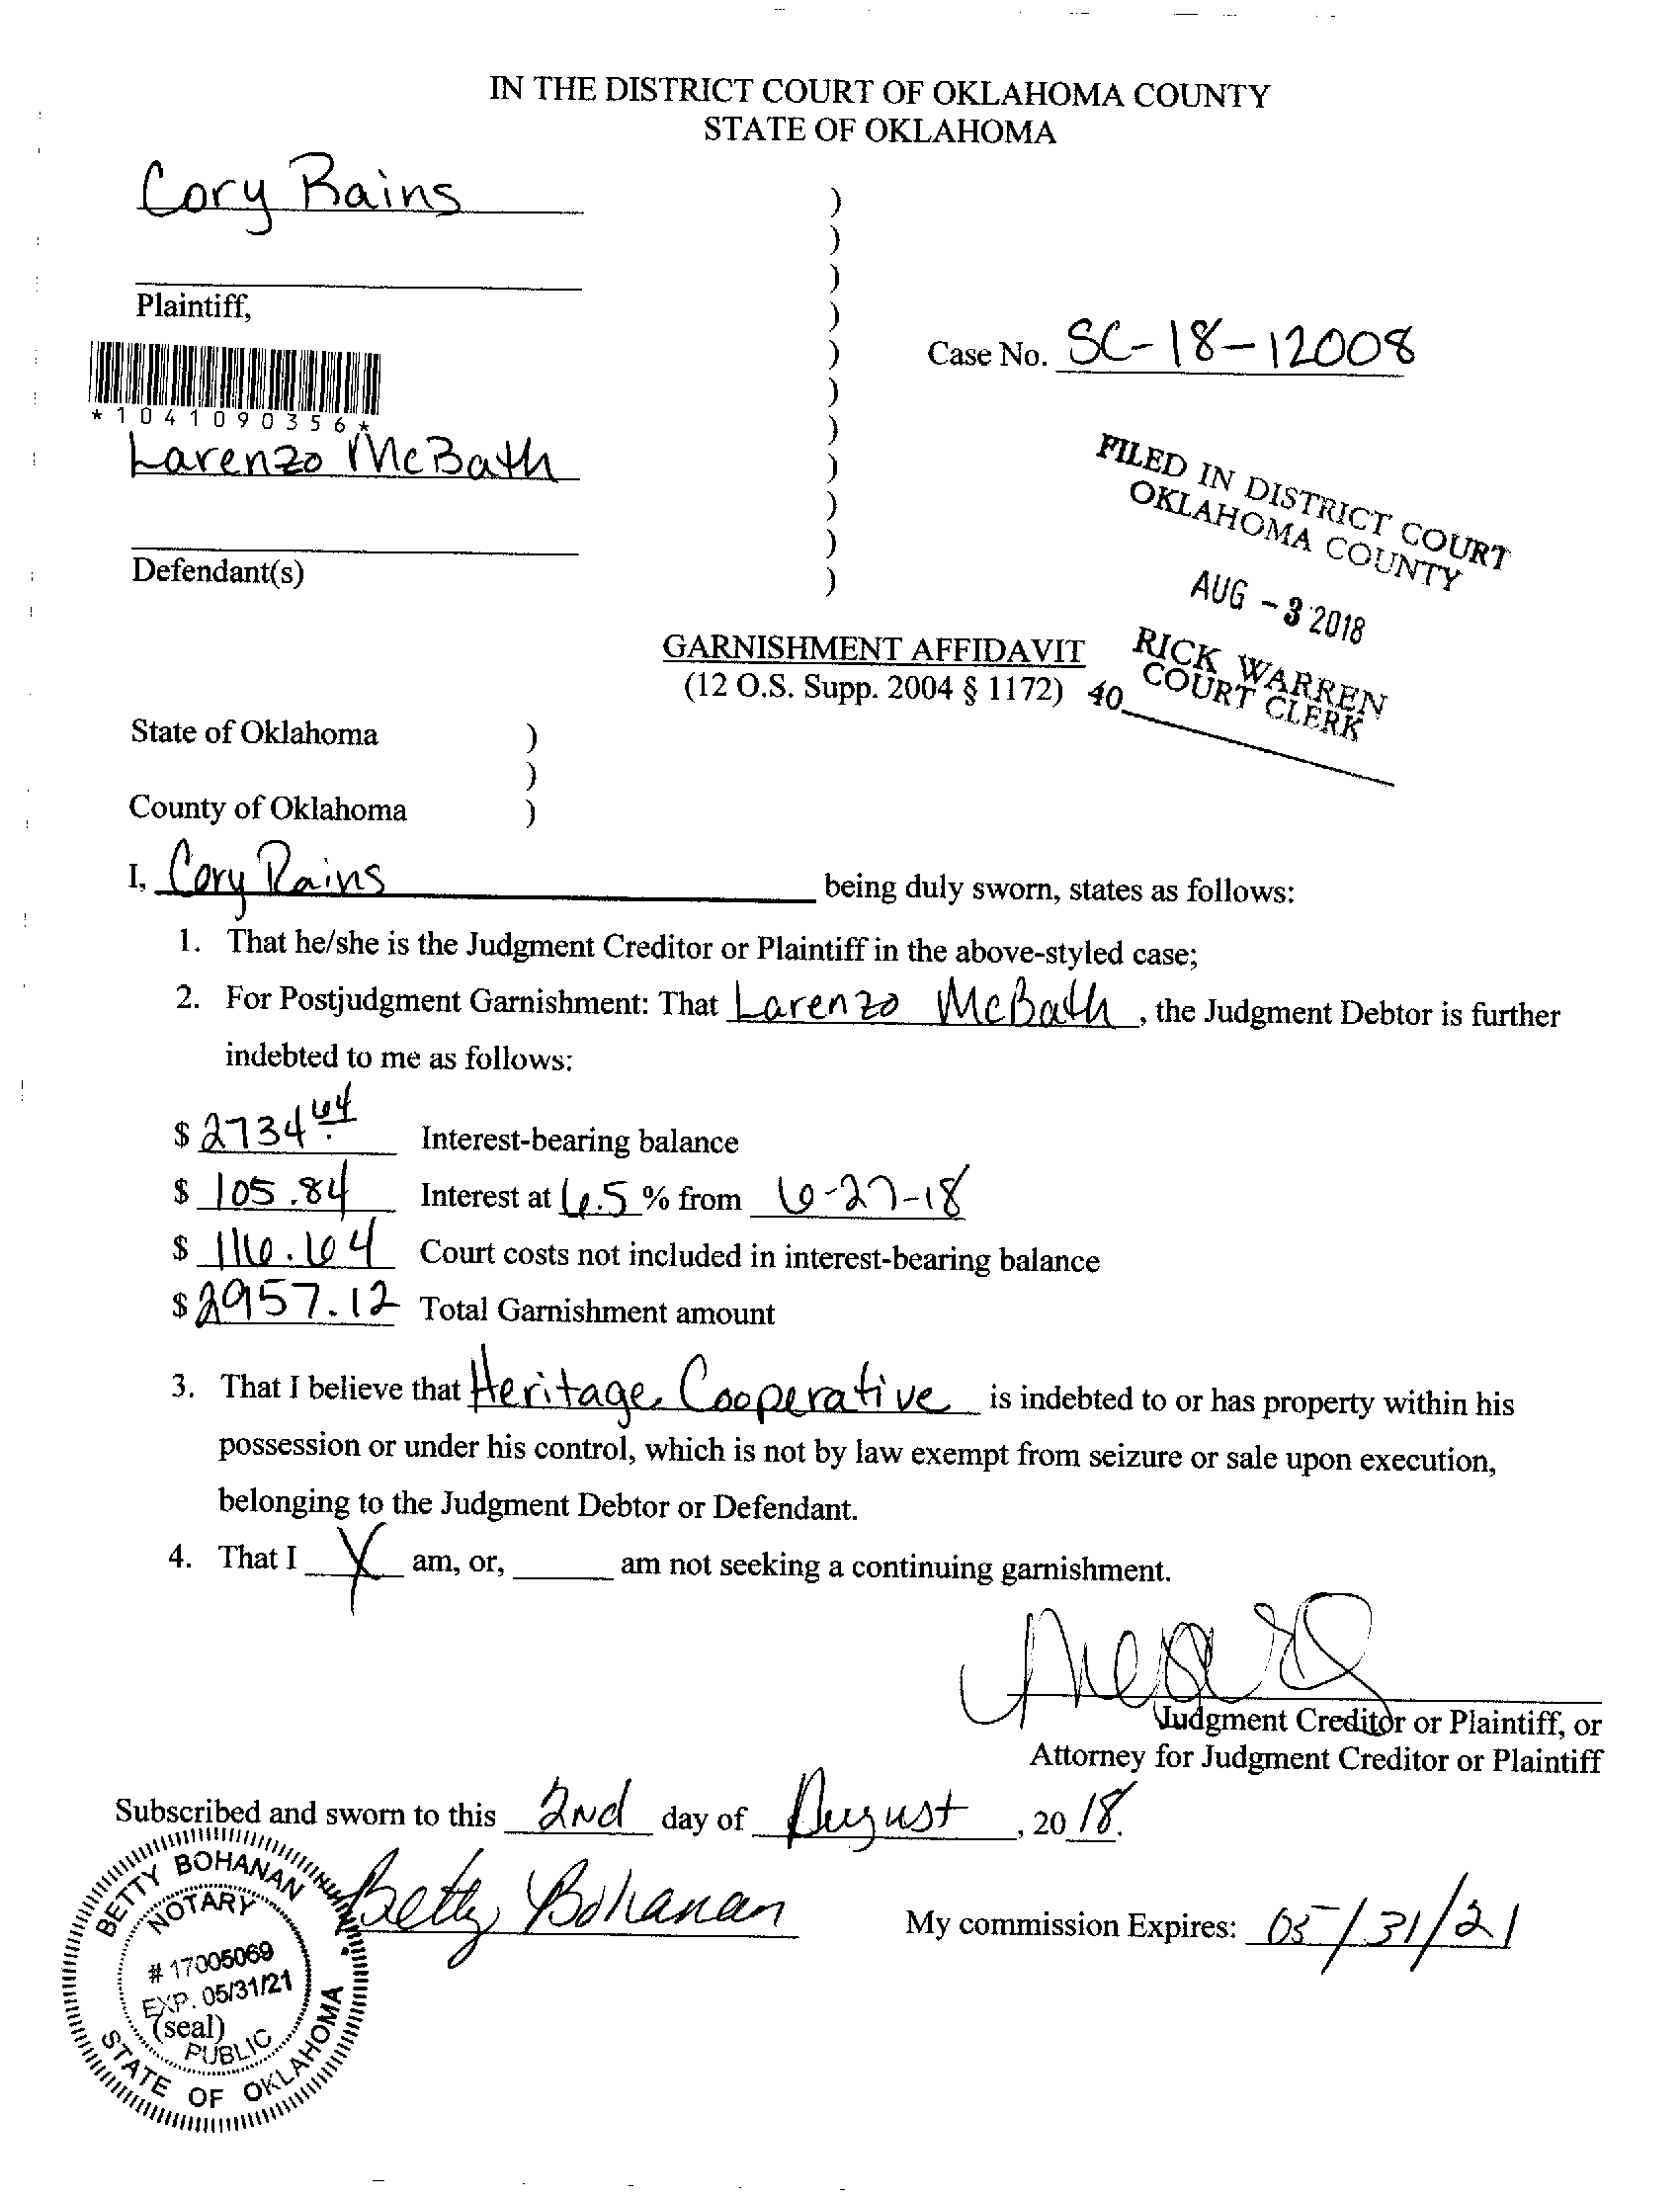 IN THE DISTRICT COURT OF OKLAHOMA COUNTY
STATE OF OKLAHOMA
Cory Rains
Plaintiff,
Case No. SC-18-12008
*1041090356*
Larenzo McBath
Defendant(s)
FILED IN DISTRICT COURT
OKLAHOMA COUNTY
AUG - 3 2018
RICK WARREN
COURT CLERK
40
GARNISHMENT AFFIDAVIT
(12 O.S. Supp. 2004 § 1172)
State of Oklahoma )
)
County of Oklahoma )
I, Cory Rains being duly sworn, states as follows:
1. That he/she is the Judgment Creditor or Plaintiff in the above-styled case;
2. For Postjudgment Garnishment: That Larenzo McBath, the Judgment Debtor is further
indebted to me as follows:
$ 2734.64 Interest-bearing balance
$ 105.84 Interest at 6.5 % from 6-27-18
$ 116.64 Court costs not included in interest-bearing balance
$ 2957.12 Total Garnishment amount
3. That I believe that Heritage Cooperative is indebted to or has property within his
possession or under his control, which is not by law exempt from seizure or sale upon execution,
belonging to the Judgment Debtor or Defendant.
4. That I X am, or, ____ am not seeking a continuing garnishment.
Judgment Creditor or Plaintiff, or
Attorney for Judgment Creditor or Plaintiff
Subscribed and sworn to this 2nd day of August, 20 18.
Betty Bohanan My commission Expires: 05/31/21
BETTY BOHANAN
NOTARY
# 17005069
EXP. 05/31/21
(seal)
PUBLIC
STATE OF OKLAHOMA